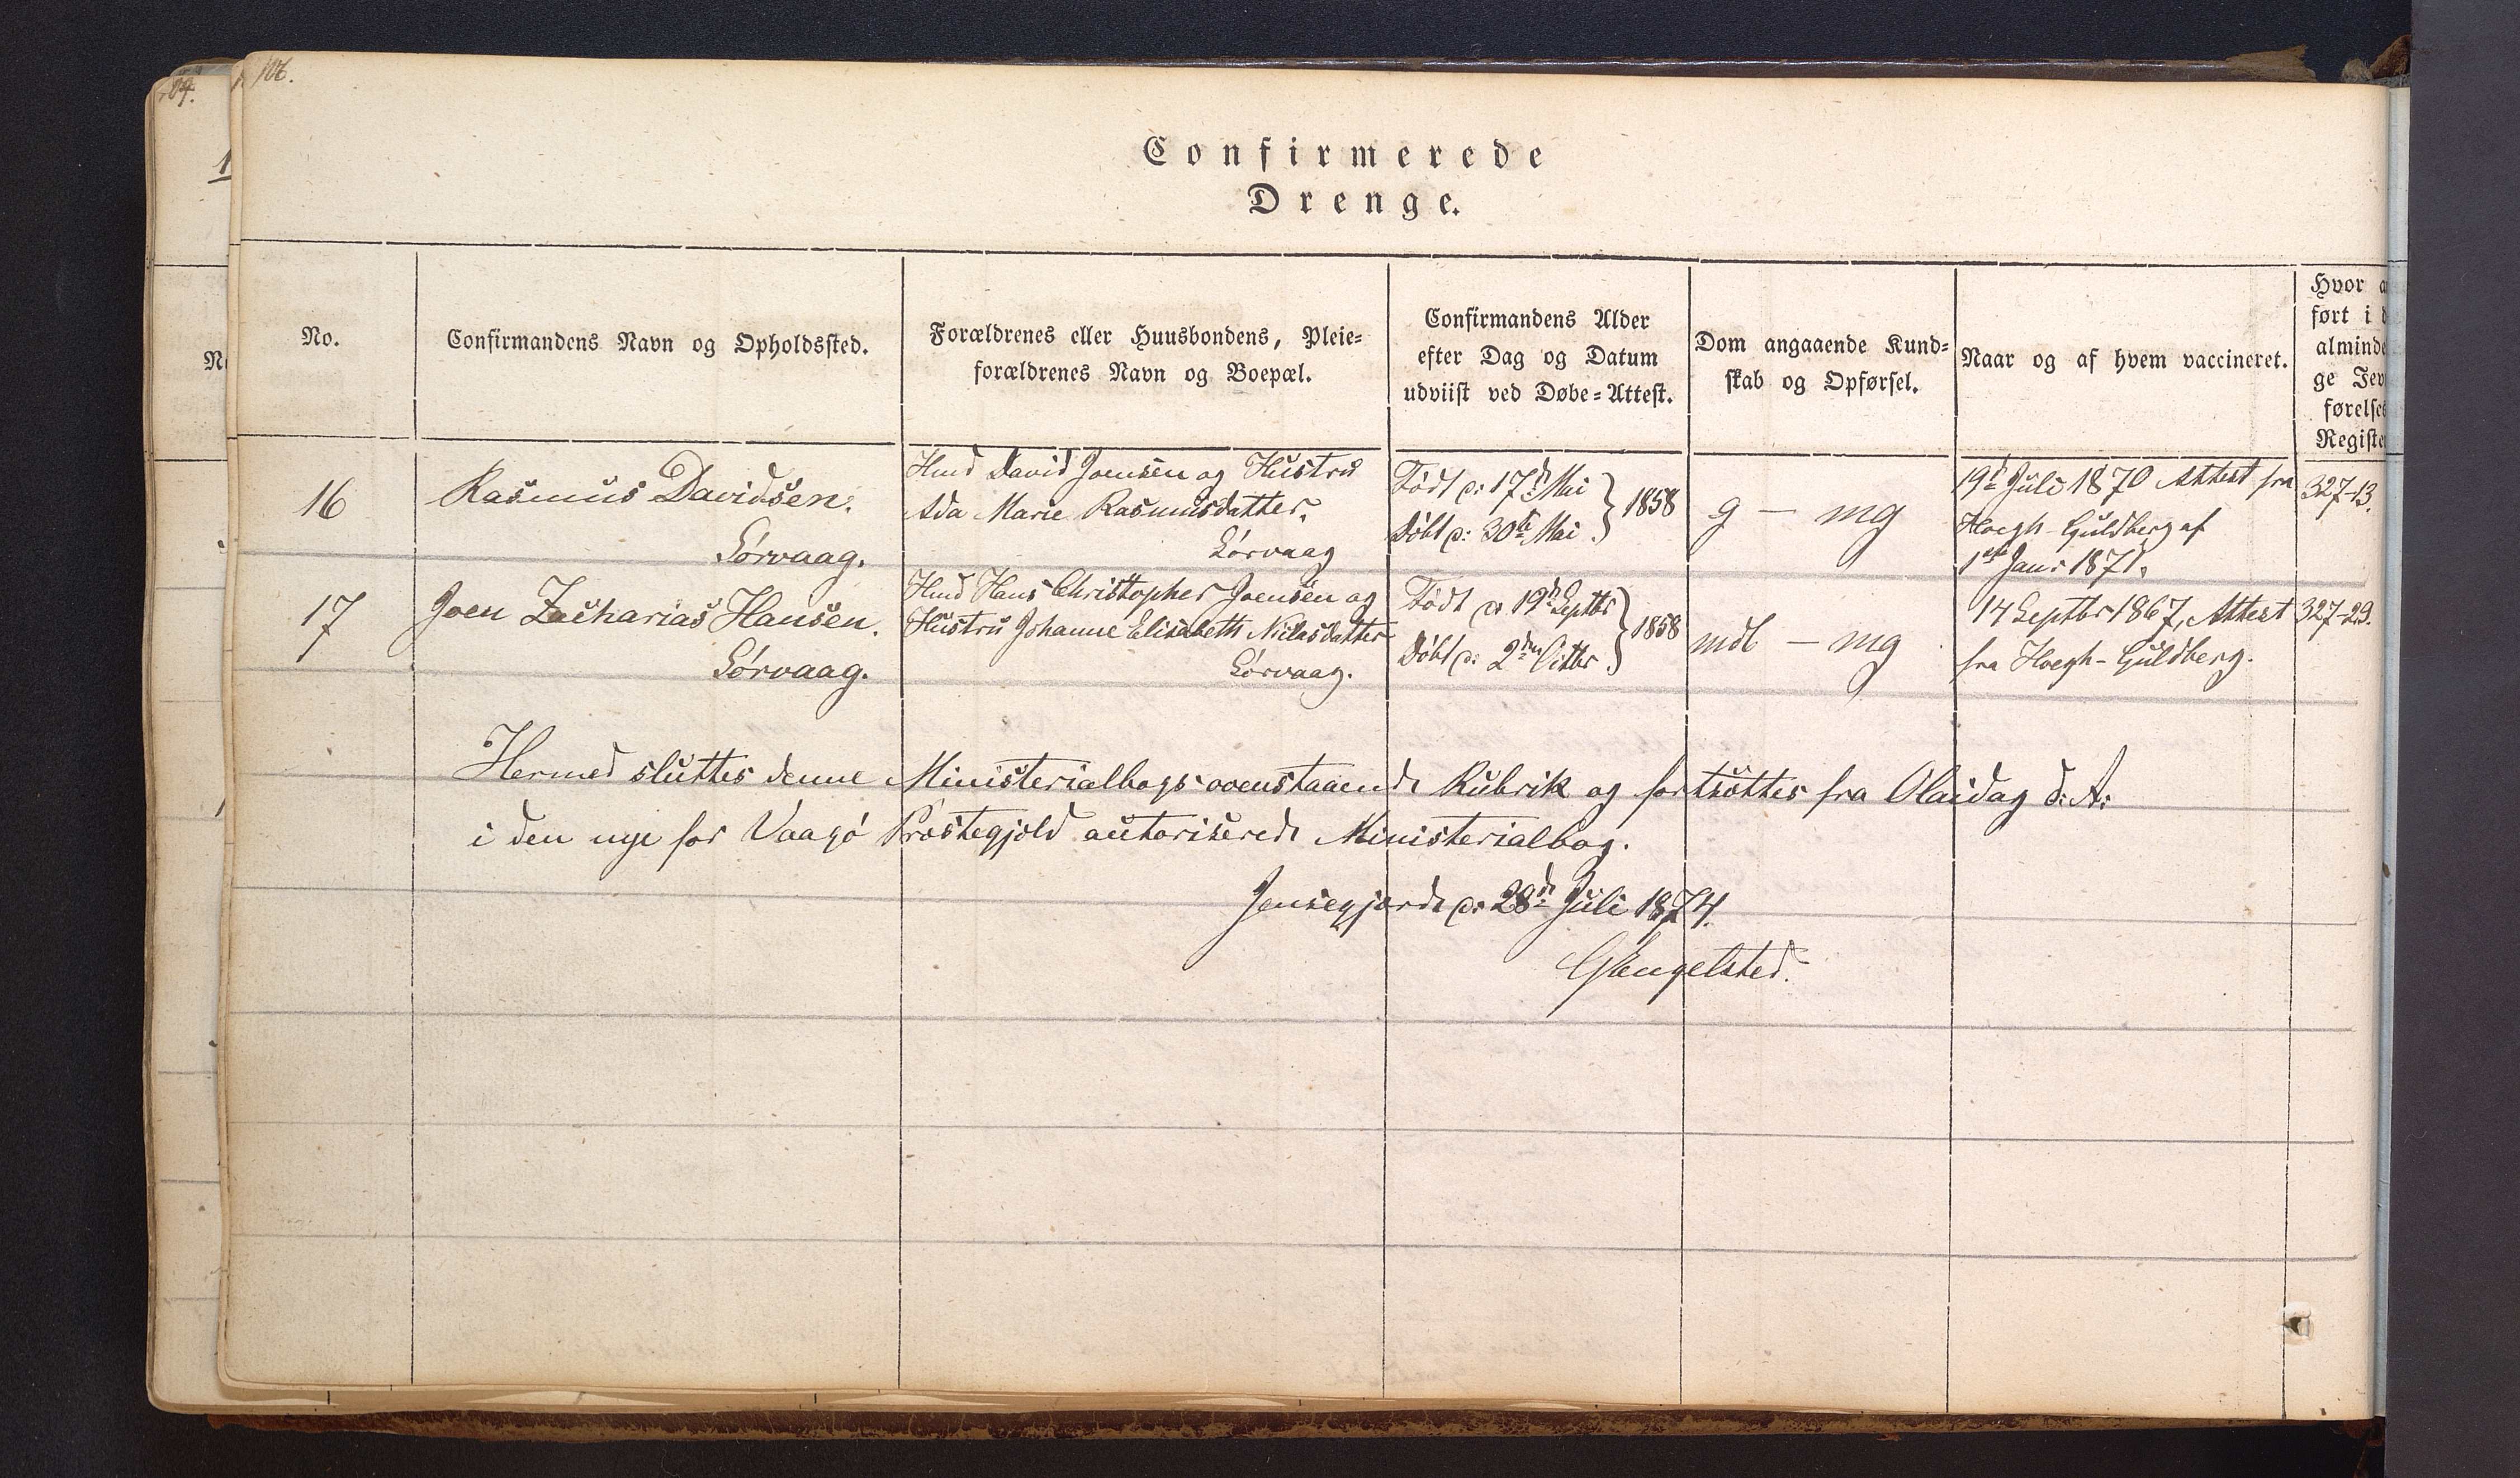 106.
Confirmerede
Drenge.
No.
Confirmandens Navn og Opholdssted.
Forældrenes eller Huusbondens, Pleie=
forældrenes Navn og Boepæl.
Confirmandens Alder
efter Dag og Datum
udviist ved Døbe=Attest.
Dom angaaende Kund=
skab og Opførsel.
Naar og af hvem vaccineret.
Hvor
ført i
alminde
ge Jev
førelses
Register
16
Rasmus Davidsen.
Sørvaag.
Hmd David Joensen og Hustru
Ada Marie Rasmusdatter.
Sørvaag
Født d: 17d Mai
Døbt d: 30te Mai
1858
g — mg
19d Juli 1870 Attest fra
Hoegh-Guldberg af
1ste Janr 1871.
327-13.
17
Joen Zacharias Hansen.
Sørvaag.
Hmd Hans Christopher Joensen og
Hustru Johanne Elisabeth Niclasdatter
Sørvaag.
Født d: 19d Septbr
Døbt d: 2den Octbr
1858
mdl — mg
14 Septbr 1867, Attest
fra Hoegh-Guldberg.
327-29.
Hermed sluttes denne Ministerialbogs ovenstaaende Rubrik og fortsættes fra Olaidag d: A:
i den nye for Vaagø Præstegjeld autoriserede Ministerialbog.
Jensegjerde d: 28d Juli 1874.
GEngelsted.